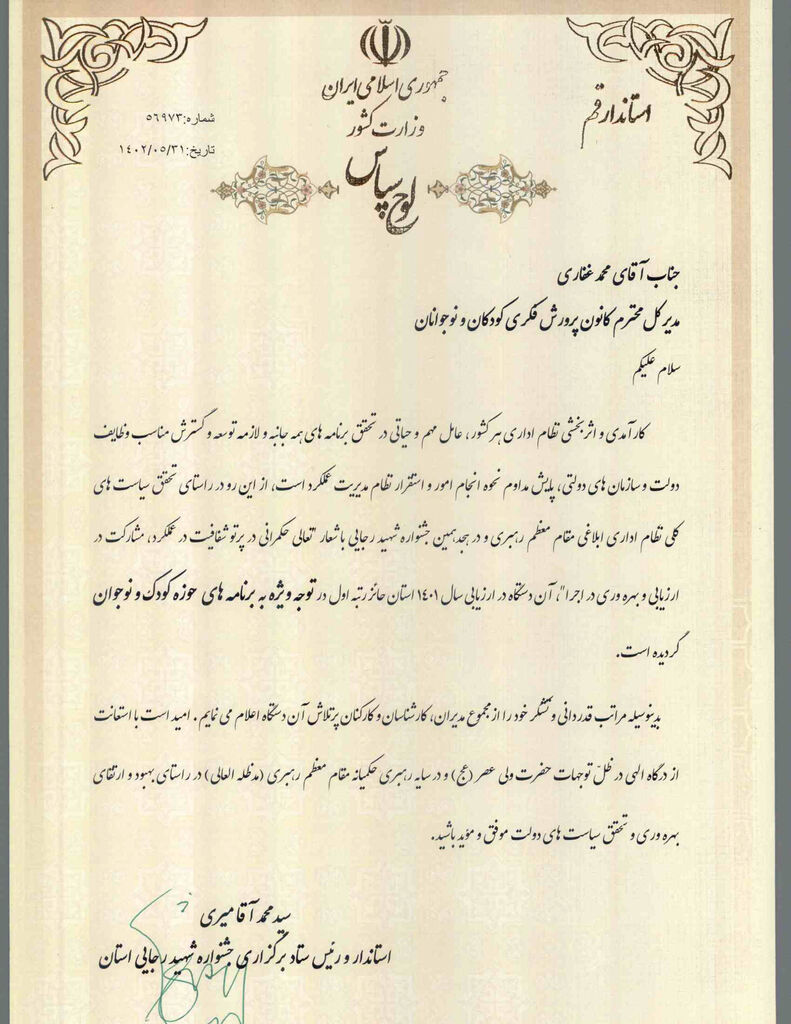 جمهوری اسلامی ایران
وزارت کشور
استاندار قم
شماره: ۵۶۹۷۳
تاریخ: ۱۴۰۲/۰۵/۳۱
لوح سپاس
جناب آقای محمد غفاری
مدیر کل محترم کانون پرورش فکری کودکان و نوجوانان
سلام علیکم
کارآمدی و اثربخشی نظام اداری هر کشور، عامل مهم و حیاتی در تحقق برنامه های همه جانبه و لازمه توسعه و گسترش مناسب وظایف
دولت و سازمان های دولتی، پایش مداوم نحوه انجام امور و استقرار نظام مدیریت عملکرد است، از این رو در راستای تحقق سیاست های
کلی نظام اداری ابلاغی مقام معظم رهبری و در هجدهمین جشنواره شهید رجایی با شعار "تعالی حکمرانی در پرتو شفافیت در عملکرد، مشارکت در
ارزیابی و بهره وری در اجرا"، آن دستگاه در ارزیابی سال ۱۴۰۱ استان حائز رتبه اول در توجه ویژه به برنامه های حوزه کودک و نوجوان
گردیده است.
بدینوسیله مراتب قدردانی و تشکر خود را از مجموع مدیران، کارشناسان و کارکنان پرتلاش آن دستگاه اعلام می نمایم. امید است با استعانت
از درگاه الهی در ظلّ توجهات حضرت ولی عصر (عج) و در سایه رهبری حکیمانه مقام معظم رهبری (مدظله العالی) در راستای بهبود و ارتقای
بهره وری و تحقق سیاست های دولت موفق و مؤید باشید.
سید محمد آقامیری
استاندار و رئیس ستاد برگزاری جشنواره شهید رجایی استان